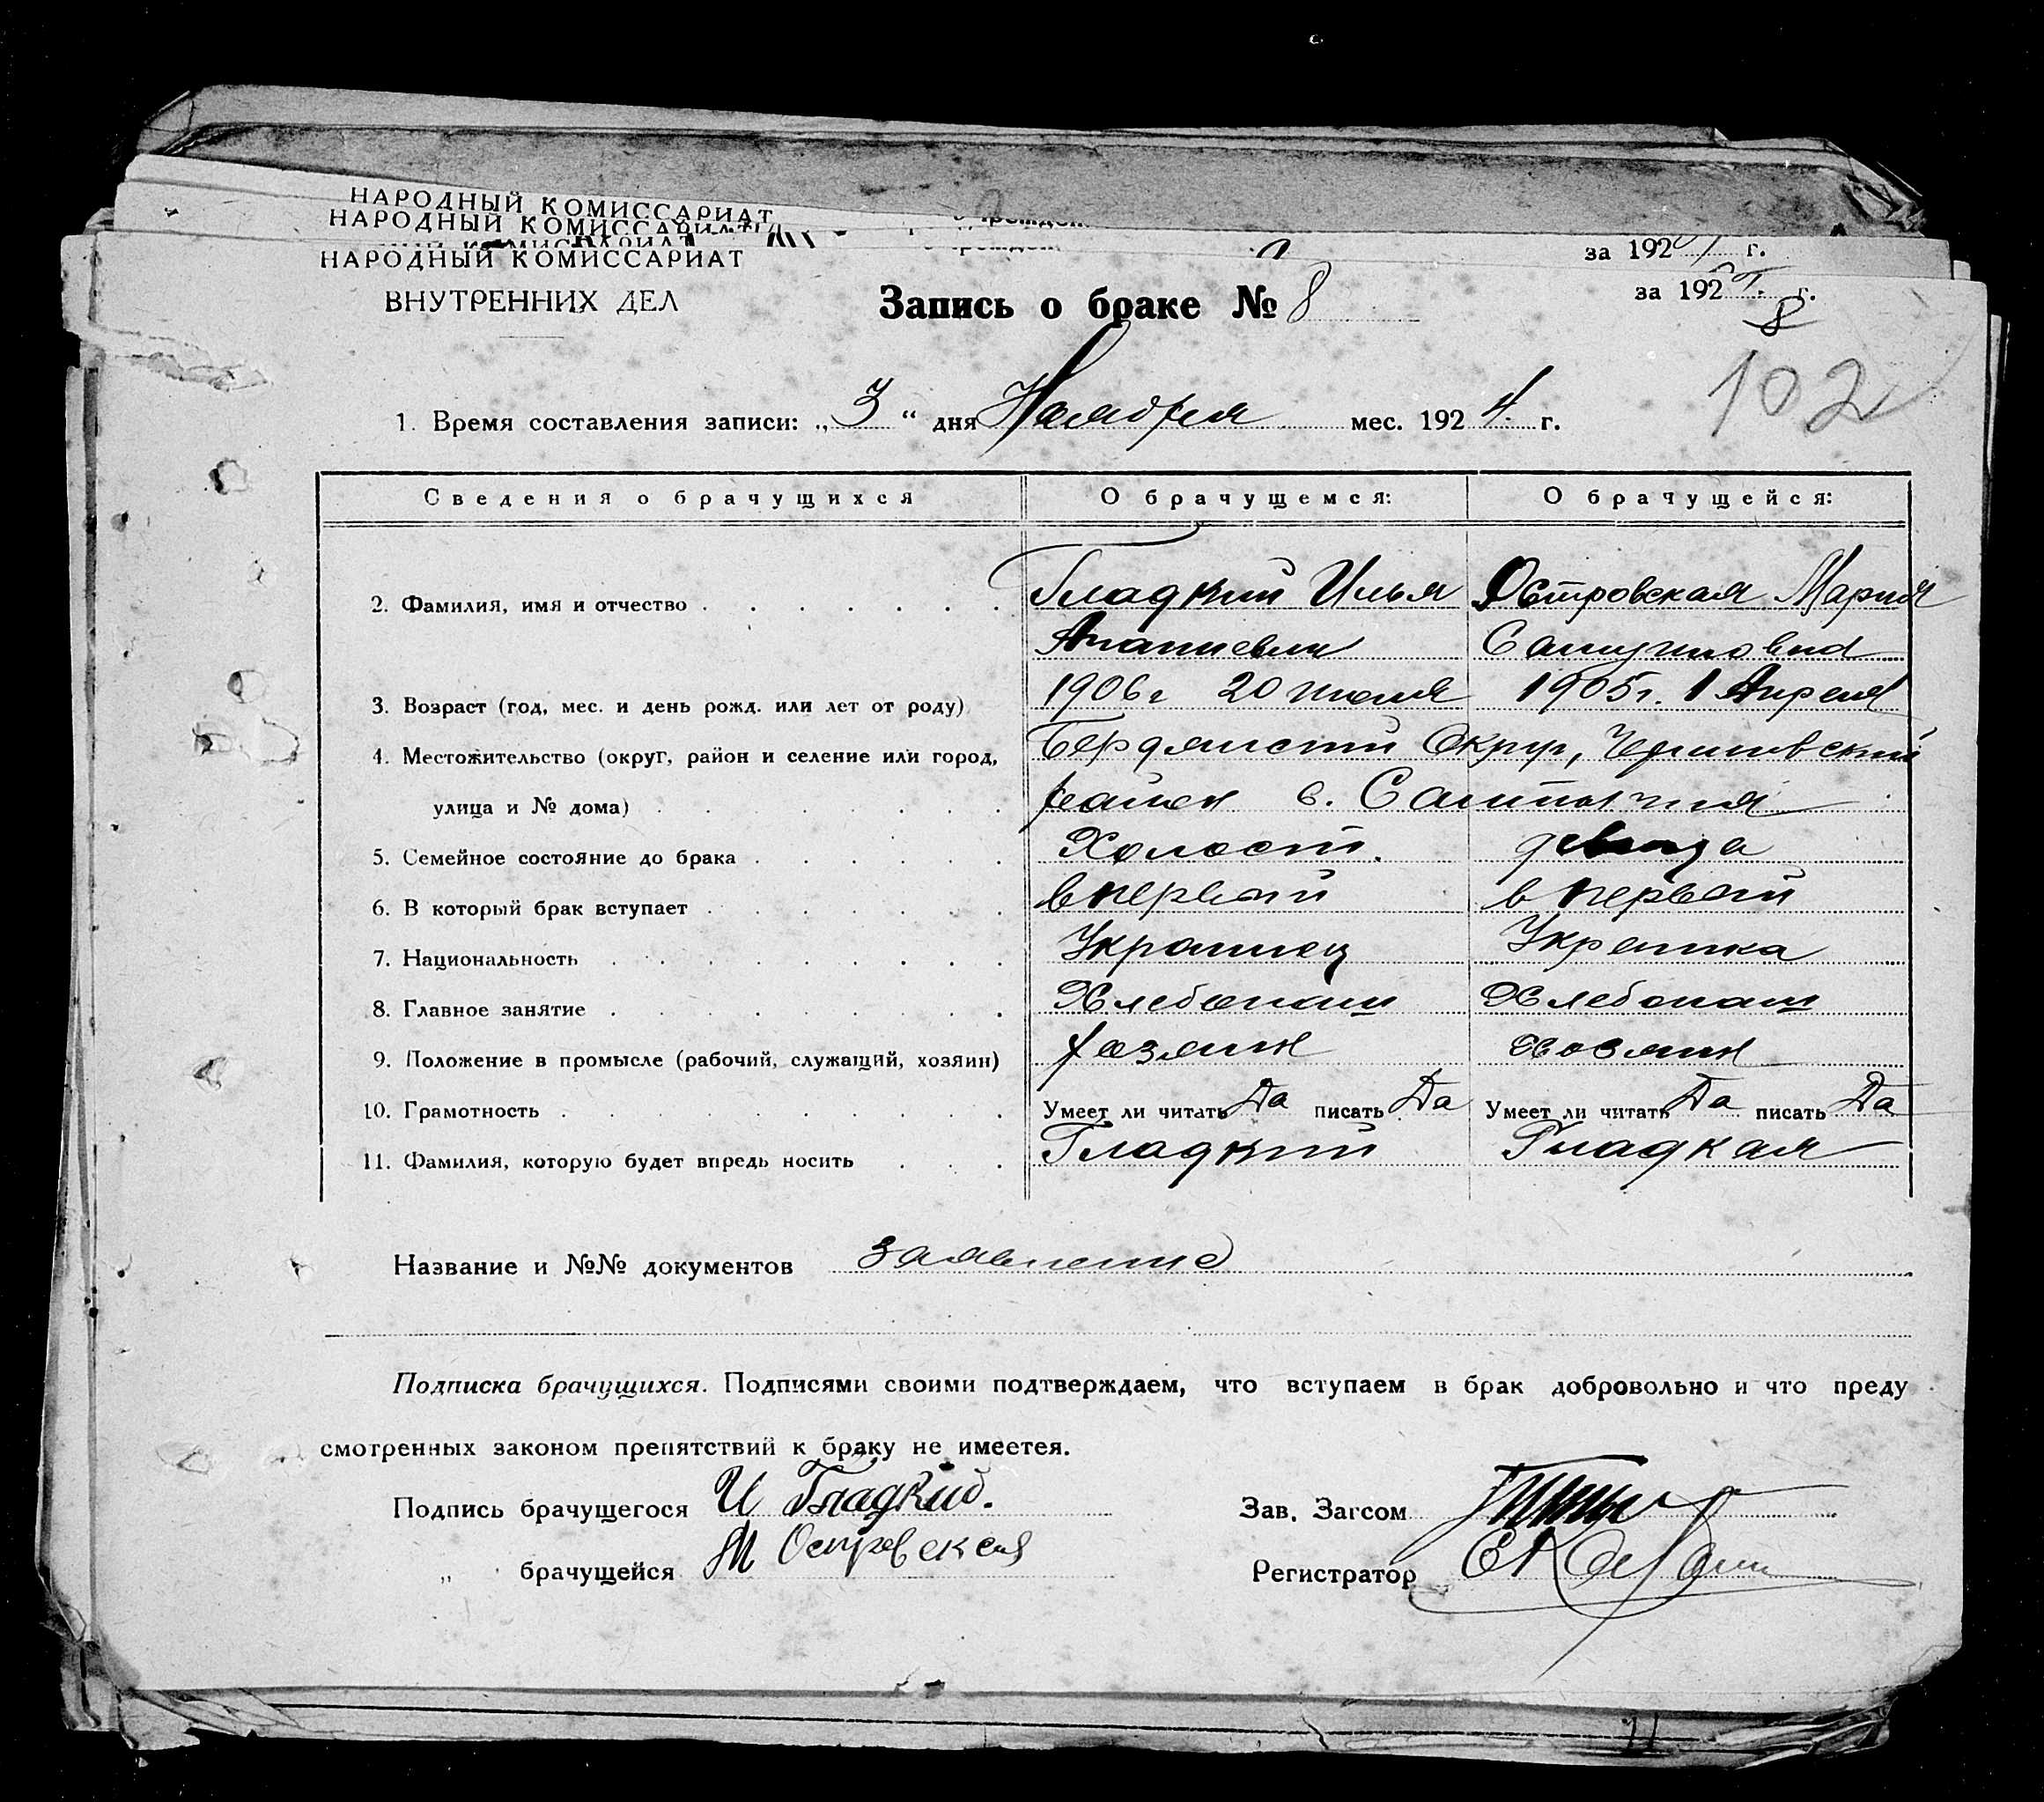 НАРОДНЫЙ КОМИССАРИАТ
НАРОДНЫЙ КОМИССАРИАТ
за 192 г.
НАРОДНЫЙ КОМИССАРИАТ
ВНУТРЕННИХ ДЕЛ
Запись о браке № 8
за 192 г.
8
102
1. Время составления записи: „3“ дня Ноября мес. 1924 г.
Сведения о брачущихся О брачущемся: О брачущейся:
2. Фамилия, имя и отчество Гладкий Илья Островская Мария
Ананиевич
3. Возраст (год, мес. и день рожд. или лет от роду) 1906 г 20 июля 1905 г. 1 Апреля
4. Местожительство (округ, район и селение или город, Бердянский Округ, Черниговский
улица и № дома) район с. Салтычия
5. Семейное состояние до брака Холост. девица
6. В который брак вступает в первый в первый
7. Национальность Украинец Украинка
8. Главное занятие Хлебопаш Хлебопаш
9. Положение в промысле (рабочий, служащий, хозяин) хозяин хозяин
10. Грамотность Умеет ли читать Да писать Да Умеет ли читать Да писать Да
11. Фамилия, которую будет впредь носить Гладкий Гладкая
Название и №№ документов заявление
Подписка брачущихся. Подписями своими подтверждаем, что вступаем в брак добровольно и что преду
смотренных законом препятствий к браку не имеется.
Подпись брачущегося И Гладкий. Зав. Загсом
„ брачущейся М Островская Регистратор